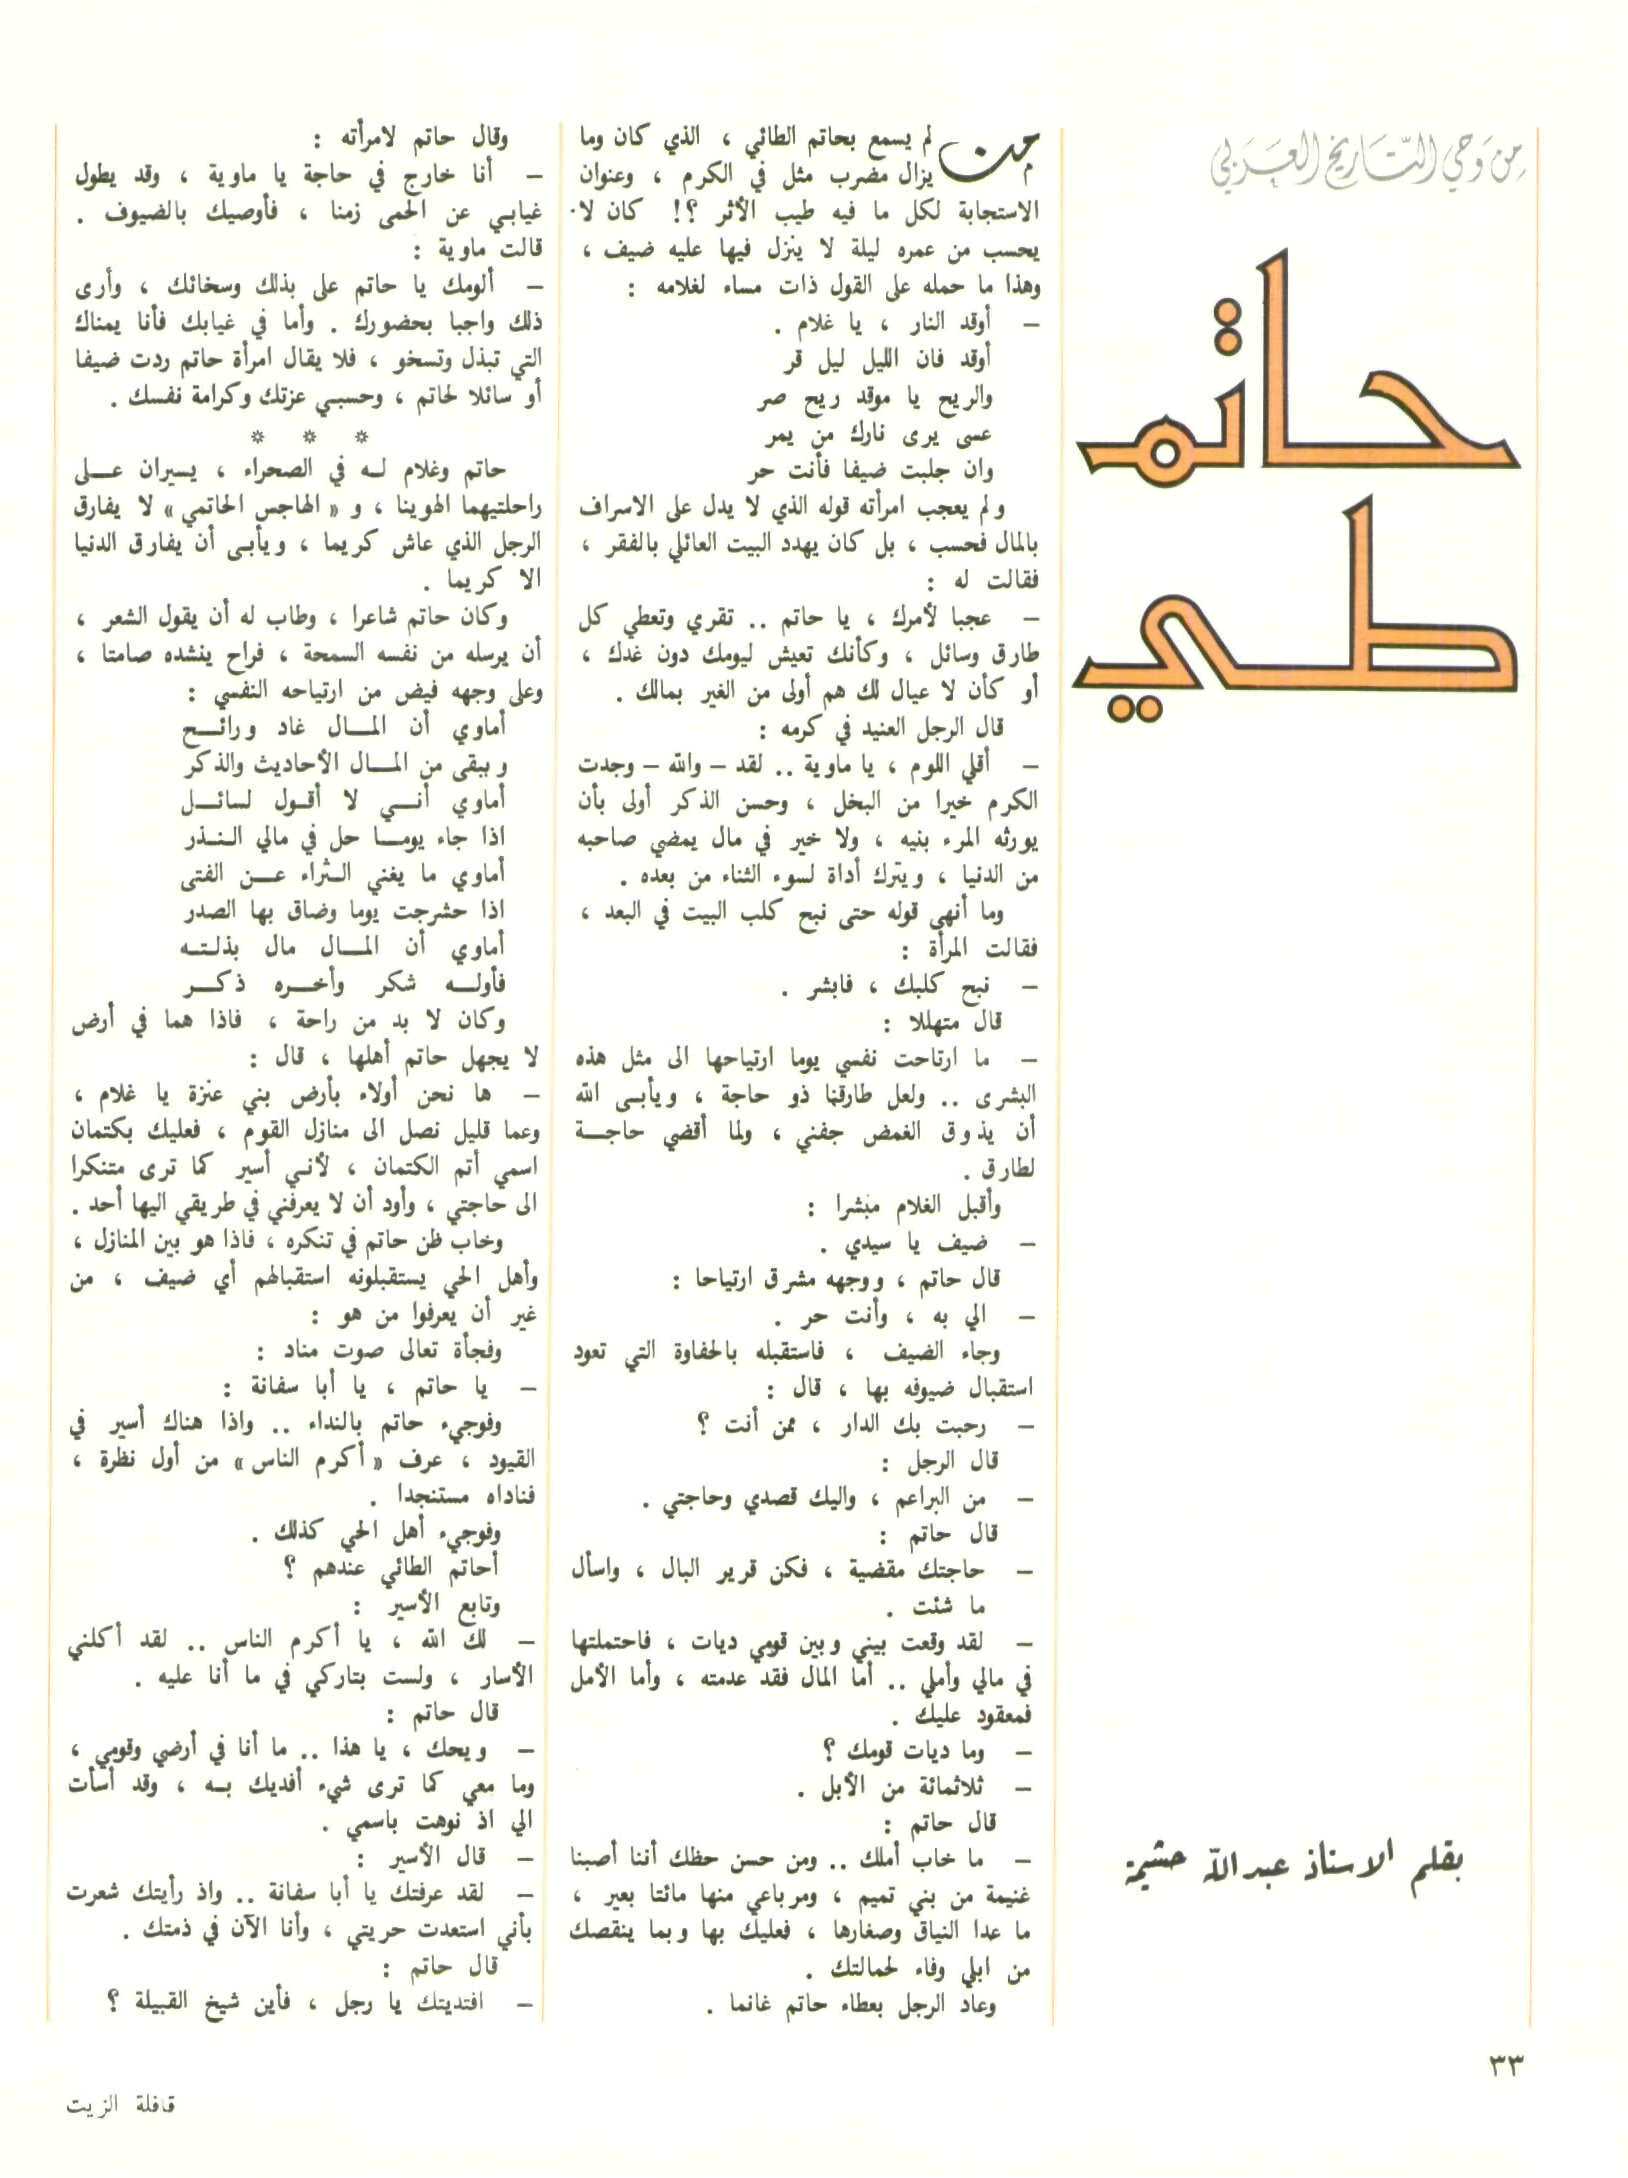 من وحي التاريخ العربي
حاتم
طي
بقلم الاستاذ عبد الله حشيمة
من لم يسمع بحاتم الطائي ، الذي كان وما
يزال مضرب مثل في الكرم ، وعنوان
الاستجابة لكل ما فيه طيب الأثر ؟! كان لا
يحسب من عمره ليلة لا ينزل فيها عليه ضيف ،
وهذا ما حمله على القول ذات مساء لغلامه :
– أوقد النار ، يا غلام .
أوقد فان الليل ليل قر
والريح يا موقد ريح صر
عسى يرى نارك من يمر
وان جلبت ضيفا فأنت حر
ولم يعجب امرأته قوله الذي لا يدل على الاسراف
بالمال فحسب ، بل كان يهدد البيت العائلي بالفقر ،
فقالت له :
– عجبا لأمرك ، يا حاتم .. تقري وتعطي كل
طارق وسائل ، وكأنك تعيش ليومك دون غدك ،
أو كأن لا عيال لك هم أولى من الغير بمالك .
قال الرجل العنيد في كرمه :
– أقلي اللوم ، يا ماوية .. لقد – والله – وجدت
الكرم خيرا من البخل ، وحسن الذكر أولى بأن
يورثه المرء بنيه ، ولا خير في مال يمضي صاحبه
من الدنيا ، ويترك أداة لسوء الثناء من بعده .
وما أنهى قوله حتى نبح كلب البيت في البعد ،
فقالت المرأة :
– نبح كلبك ، فابشر .
قال متهللا :
– ما ارتاحت نفسي يوما ارتياحها الى مثل هذه
البشرى .. ولعل طارقنا ذو حاجة ، ويأبى الله
أن يذوق الغمض جفني ، ولما أقضي حاجة
لطارق .
وأقبل الغلام مبشرا :
– ضيف يا سيدي .
قال حاتم ، ووجهه مشرق ارتياحا :
– الي به ، وأنت حر .
وجاء الضيف ، فاستقبله بالحفاوة التي تعود
استقبال ضيوفه بها ، قال :
– رحبت بك الدار ، ممن أنت ؟
قال الرجل :
– من البراعم ، واليك قصدي وحاجتي .
قال حاتم :
– حاجتك مقضية ، فكن قرير البال ، واسأل
ما شئت .
– لقد وقعت بيني وبين قومي ديات ، فاحتملتها
في مالي وأملي .. أما المال فقد عدمته ، وأما الأمل
فمعقود عليك .
– وما ديات قومك ؟
– ثلاثمائة من الأبل .
قال حاتم :
– ما خاب أملك .. ومن حسن حظك أننا أصبنا
غنيمة من بني تميم ، ومرباعي منها مائتا بعير ،
ما عدا النياق وصغارها ، فعليك بها وبما ينقصك
من ابلي وفاء لحمالتك .
وعاد الرجل بعطاء حاتم غانما .
وقال حاتم لامرأته :
– أنا خارج في حاجة يا ماوية ، وقد يطول
غيابي عن الحمى زمنا ، فأوصيك بالضيوف .
قالت ماوية :
– ألومك يا حاتم على بذلك وسخائك ، وأرى
ذلك واجبا بحضورك . وأما في غيابك فأنا يمناك
التي تبذل وتسخو ، فلا يقال امرأة حاتم ردت ضيفا
أو سائلا لحاتم ، وحسبي عزتك وكرامة نفسك .
* * *
حاتم وغلام له في الصحراء ، يسيران على
راحلتيهما الهوينا ، و « الهاجس الحاتمي » لا يفارق
الرجل الذي عاش كريما ، ويأبى أن يفارق الدنيا
الا كريما .
وكان حاتم شاعرا ، وطاب له أن يقول الشعر ،
أن يرسله من نفسه السمحة ، فراح ينشده صامتا ،
وعلى وجهه فيض من ارتياحه النفسي :
أماوي أن المال غاد ورائح
ويبقى من المال الأحاديث والذكر
أماوي أني لا أقول لسائل
اذا جاء يوما حل في مالي النذر
أماوي ما يغني الثراء عن الفتى
اذا حشرجت يوما وضاق بها الصدر
أماوي أن المال مال بذلته
فأوله شكر وأخره ذكر
وكان لا بد من راحة ، فاذا هما في أرض
لا يجهل حاتم أهلها ، قال :
– ها نحن أولاء بأرض بني عنزة يا غلام ،
وعما قليل نصل الى منازل القوم ، فعليك بكتمان
اسمي أتم الكتمان ، لأني أسير كما ترى متنكرا
الى حاجتي ، وأود أن لا يعرفني في طريقي اليها أحد .
وخاب ظن حاتم في تنكره ، فاذا هو بين المنازل ،
وأهل الحي يستقبلونه استقبالهم أي ضيف ، من
غير أن يعرفوا من هو :
وفجأة تعالى صوت مناد :
– يا حاتم ، يا أبا سفانة :
وفوجيء حاتم بالنداء .. واذا هناك أسير في
القيود ، عرف « أكرم الناس » من أول نظرة ،
فناداه مستنجدا .
وفوجيء أهل الحي كذلك .
أحاتم الطائي عندهم ؟
وتابع الأسير :
– لك الله ، يا أكرم الناس .. لقد أكلني
الأسار ، ولست بتاركي في ما أنا عليه .
قال حاتم :
– ويحك ، يا هذا .. ما أنا في أرضي وقومي ،
وما معي كما ترى شيء أفديك به ، وقد أسأت
الي اذ نوهت باسمي .
– قال الأسير :
– لقد عرفتك يا أبا سفانة .. واذ رأيتك شعرت
بأني استعدت حريتي ، وأنا الآن في ذمتك .
قال حاتم :
– افتديتك يا رجل ، فأين شيخ القبيلة ؟
٣٣
قافلة الزيت